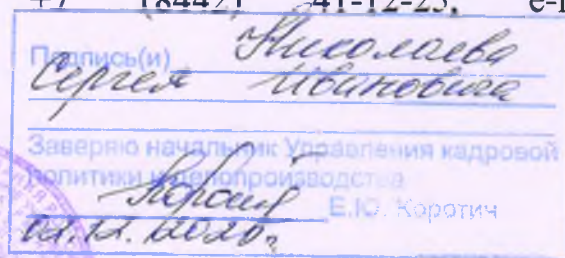 +7 (8442) 41-12-25, e-
Подпись(и) Николаева
Сергея Ивановича
Заверяю начальник Управления кадровой
политики и делопроизводства
Е.Ю. Коротич
02.12.2020г